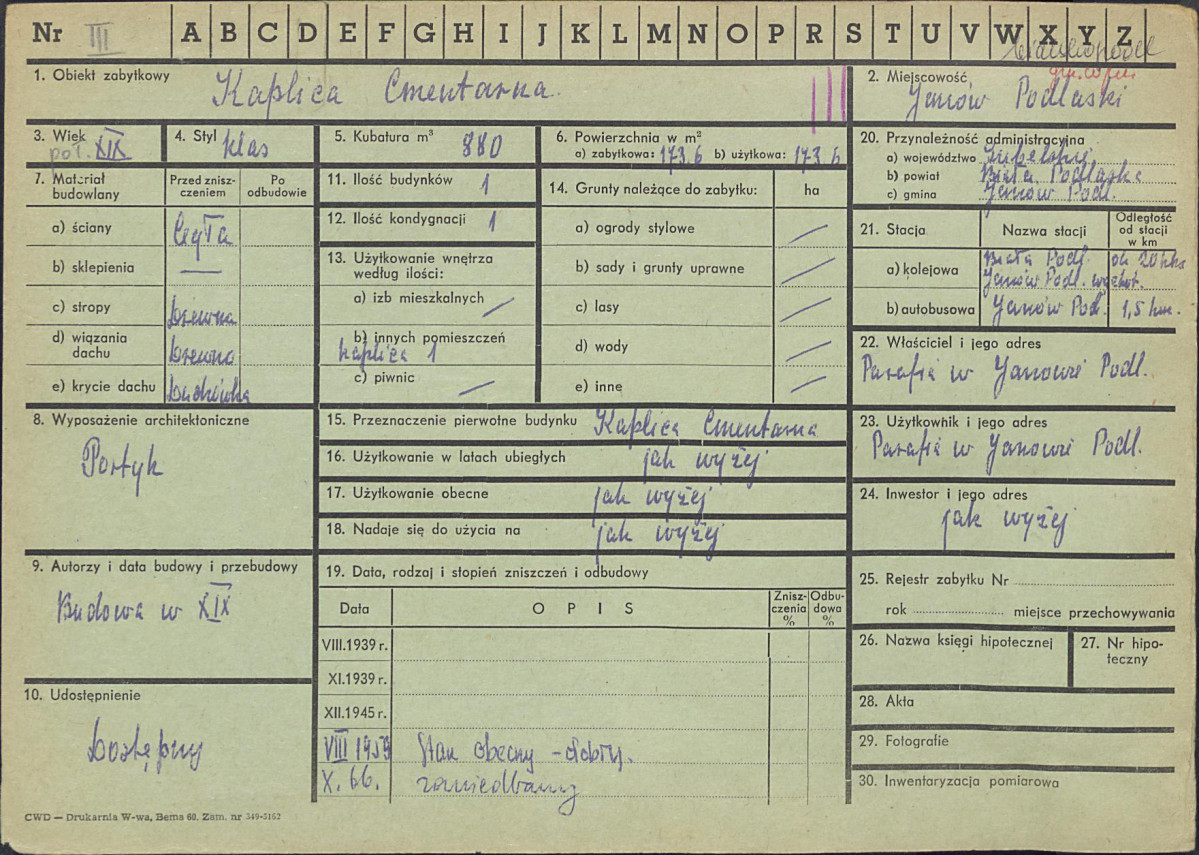 Nr III A B C D E F G H I J K L M N O P R S T U V W X Y Z
1. Obiekt zabytkowy Kaplica Cmentarna
2. Miejscowość
Janów Podlaski
3. Wiek
poł. XIX
4. Styl klas
5. Kubatura m³ 880
6. Powierzchnia w m²
a) zabytkowa: 173.6 b) użytkowa: 173.6
7. Materiał
budowlany
Przed znisz-
czeniem
Po
odbudowie
a) ściany Cegła
b) sklepienia —
c) stropy Drewna
d) wiązania
dachu Drewno
e) krycie dachu Dachówka
8. Wyposażenie architektoniczne
Portyk
9. Autorzy i data budowy i przebudowy
Budowa w XIX
10. Udostępnienie
Dostępny
11. Ilość budynków 1
12. Ilość kondygnacji 1
13. Użytkowanie wnętrza
według ilości:
a) izb mieszkalnych /
b) innych pomieszczeń
kaplica 1
c) piwnic /
14. Grunty należące do zabytku: ha
a) ogrody stylowe /
b) sady i grunty uprawne /
c) lasy /
d) wody /
e) inne /
15. Przeznaczenie pierwotne budynku Kaplica Cmentarna
16. Użytkowanie w latach ubiegłych jak wyżej
17. Użytkowanie obecne jak wyżej
18. Nadaje się do użycia na jak wyżej
19. Data, rodzaj i stopień zniszczeń i odbudowy
Data
O P I S
Znisz-
czenia
%
Odbu-
dowa
%
VIII.1939 r.
XI.1939 r.
XII.1945 r.
VIII 1959 Stan obecny - dobry.
X. 66. zaniedbany
20. Przynależność administracyjna
a) województwo Lubelskie
b) powiat Biała Podlaska
c) gmina Janów Podl.
21. Stacja
Nazwa stacji
Odległość
od stacji
w km
a) kolejowa
Biała Podl. ok 20 km
Janów Podl.
b) autobusowa Janów Pod. 1,5 km.
22. Właściciel i jego adres
Parafia w Janowie Podl.
23. Użytkownik i jego adres
Parafia w Janowie Podl.
24. Inwestor i jego adres
jak wyżej
25. Rejestr zabytku Nr
rok miejsce przechowywania
26. Nazwa księgi hipotecznej
27. Nr hipo-
teczny
28. Akta
29. Fotografie
30. Inwentaryzacja pomiarowa
CWD — Drukarnia W-wa, Bema 60. Zam. nr 349-5162